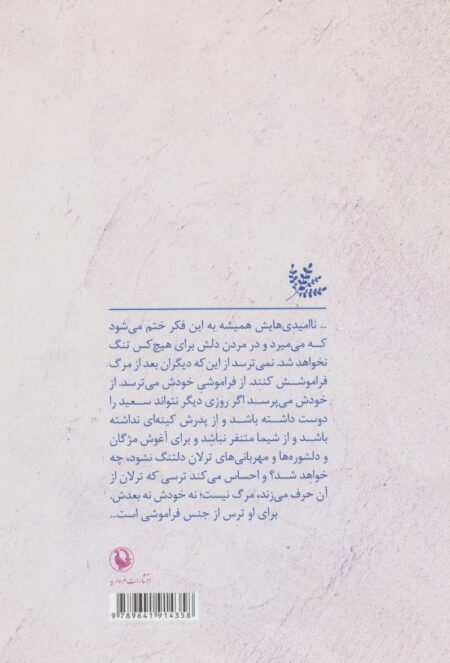 ... ناامیدی‌هایش همیشه به این فکر ختم می‌شود
که می‌میرد و در مردن دلش برای هیچ‌کس تنگ
نخواهد شد. نمی‌ترسد از این‌که دیگران بعد از مرگ
فراموشش کنند. از فراموشیِ خودش می‌ترسد. از
خودش می‌پرسد اگر روزی دیگر نتواند سعید را
دوست داشته باشد و از پدرش کینه‌ای نداشته
باشد و از شیما متنفر نباشد و برای آغوش مژگان
و دلشوره‌ها و مهربانی‌های ترلان دلتنگ نشود، چه
خواهد شد؟ و احساس می‌کند ترسی که ترلان از
آن حرف می‌زند، مرگ نیست؛ نه خودش نه بعدش.
برای او ترس از جنس فراموشی است...
انتشارات مروارید
9 789641 914358